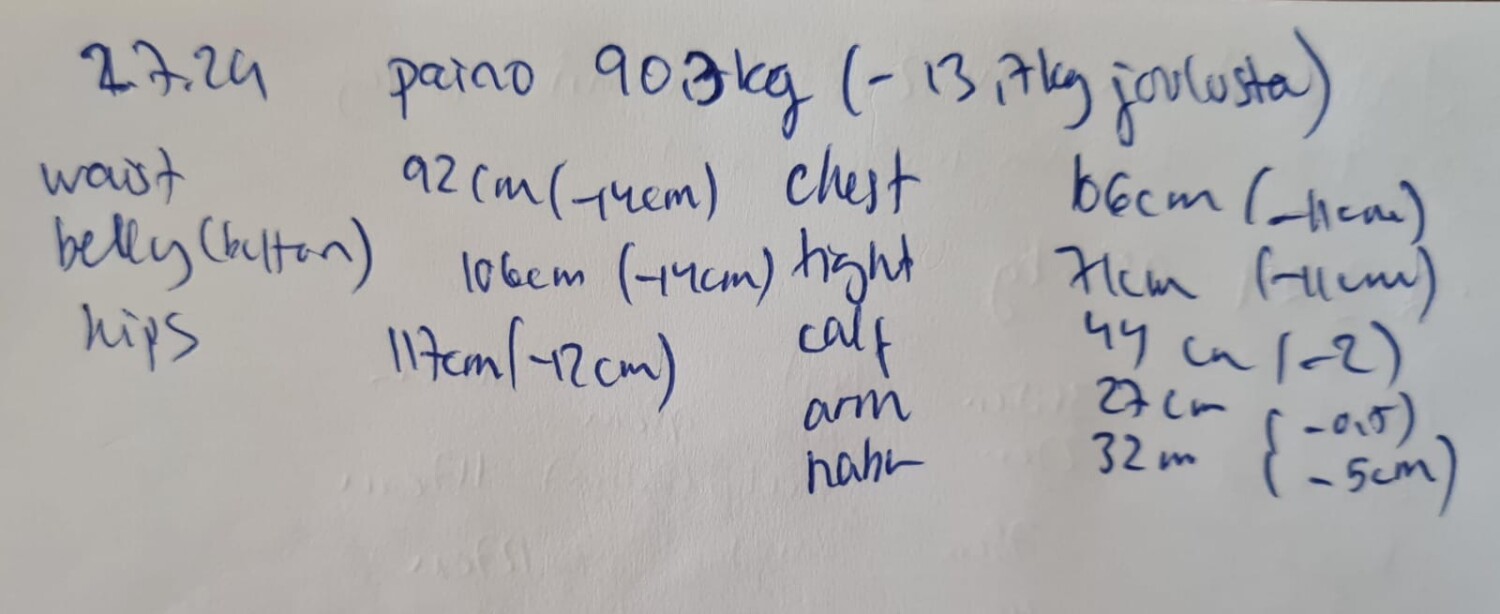 2.7.24 paino 90,3kg (-13,7kg joulusta)
waist 92cm (-14cm) chest 106cm (-11cm)
belly (button) 106cm (-14cm) tight 71cm (-11cm)
hips 117cm (-12cm) calf 44 cm (-2)
arm 27cm (-0,5)
32 m (-5cm)